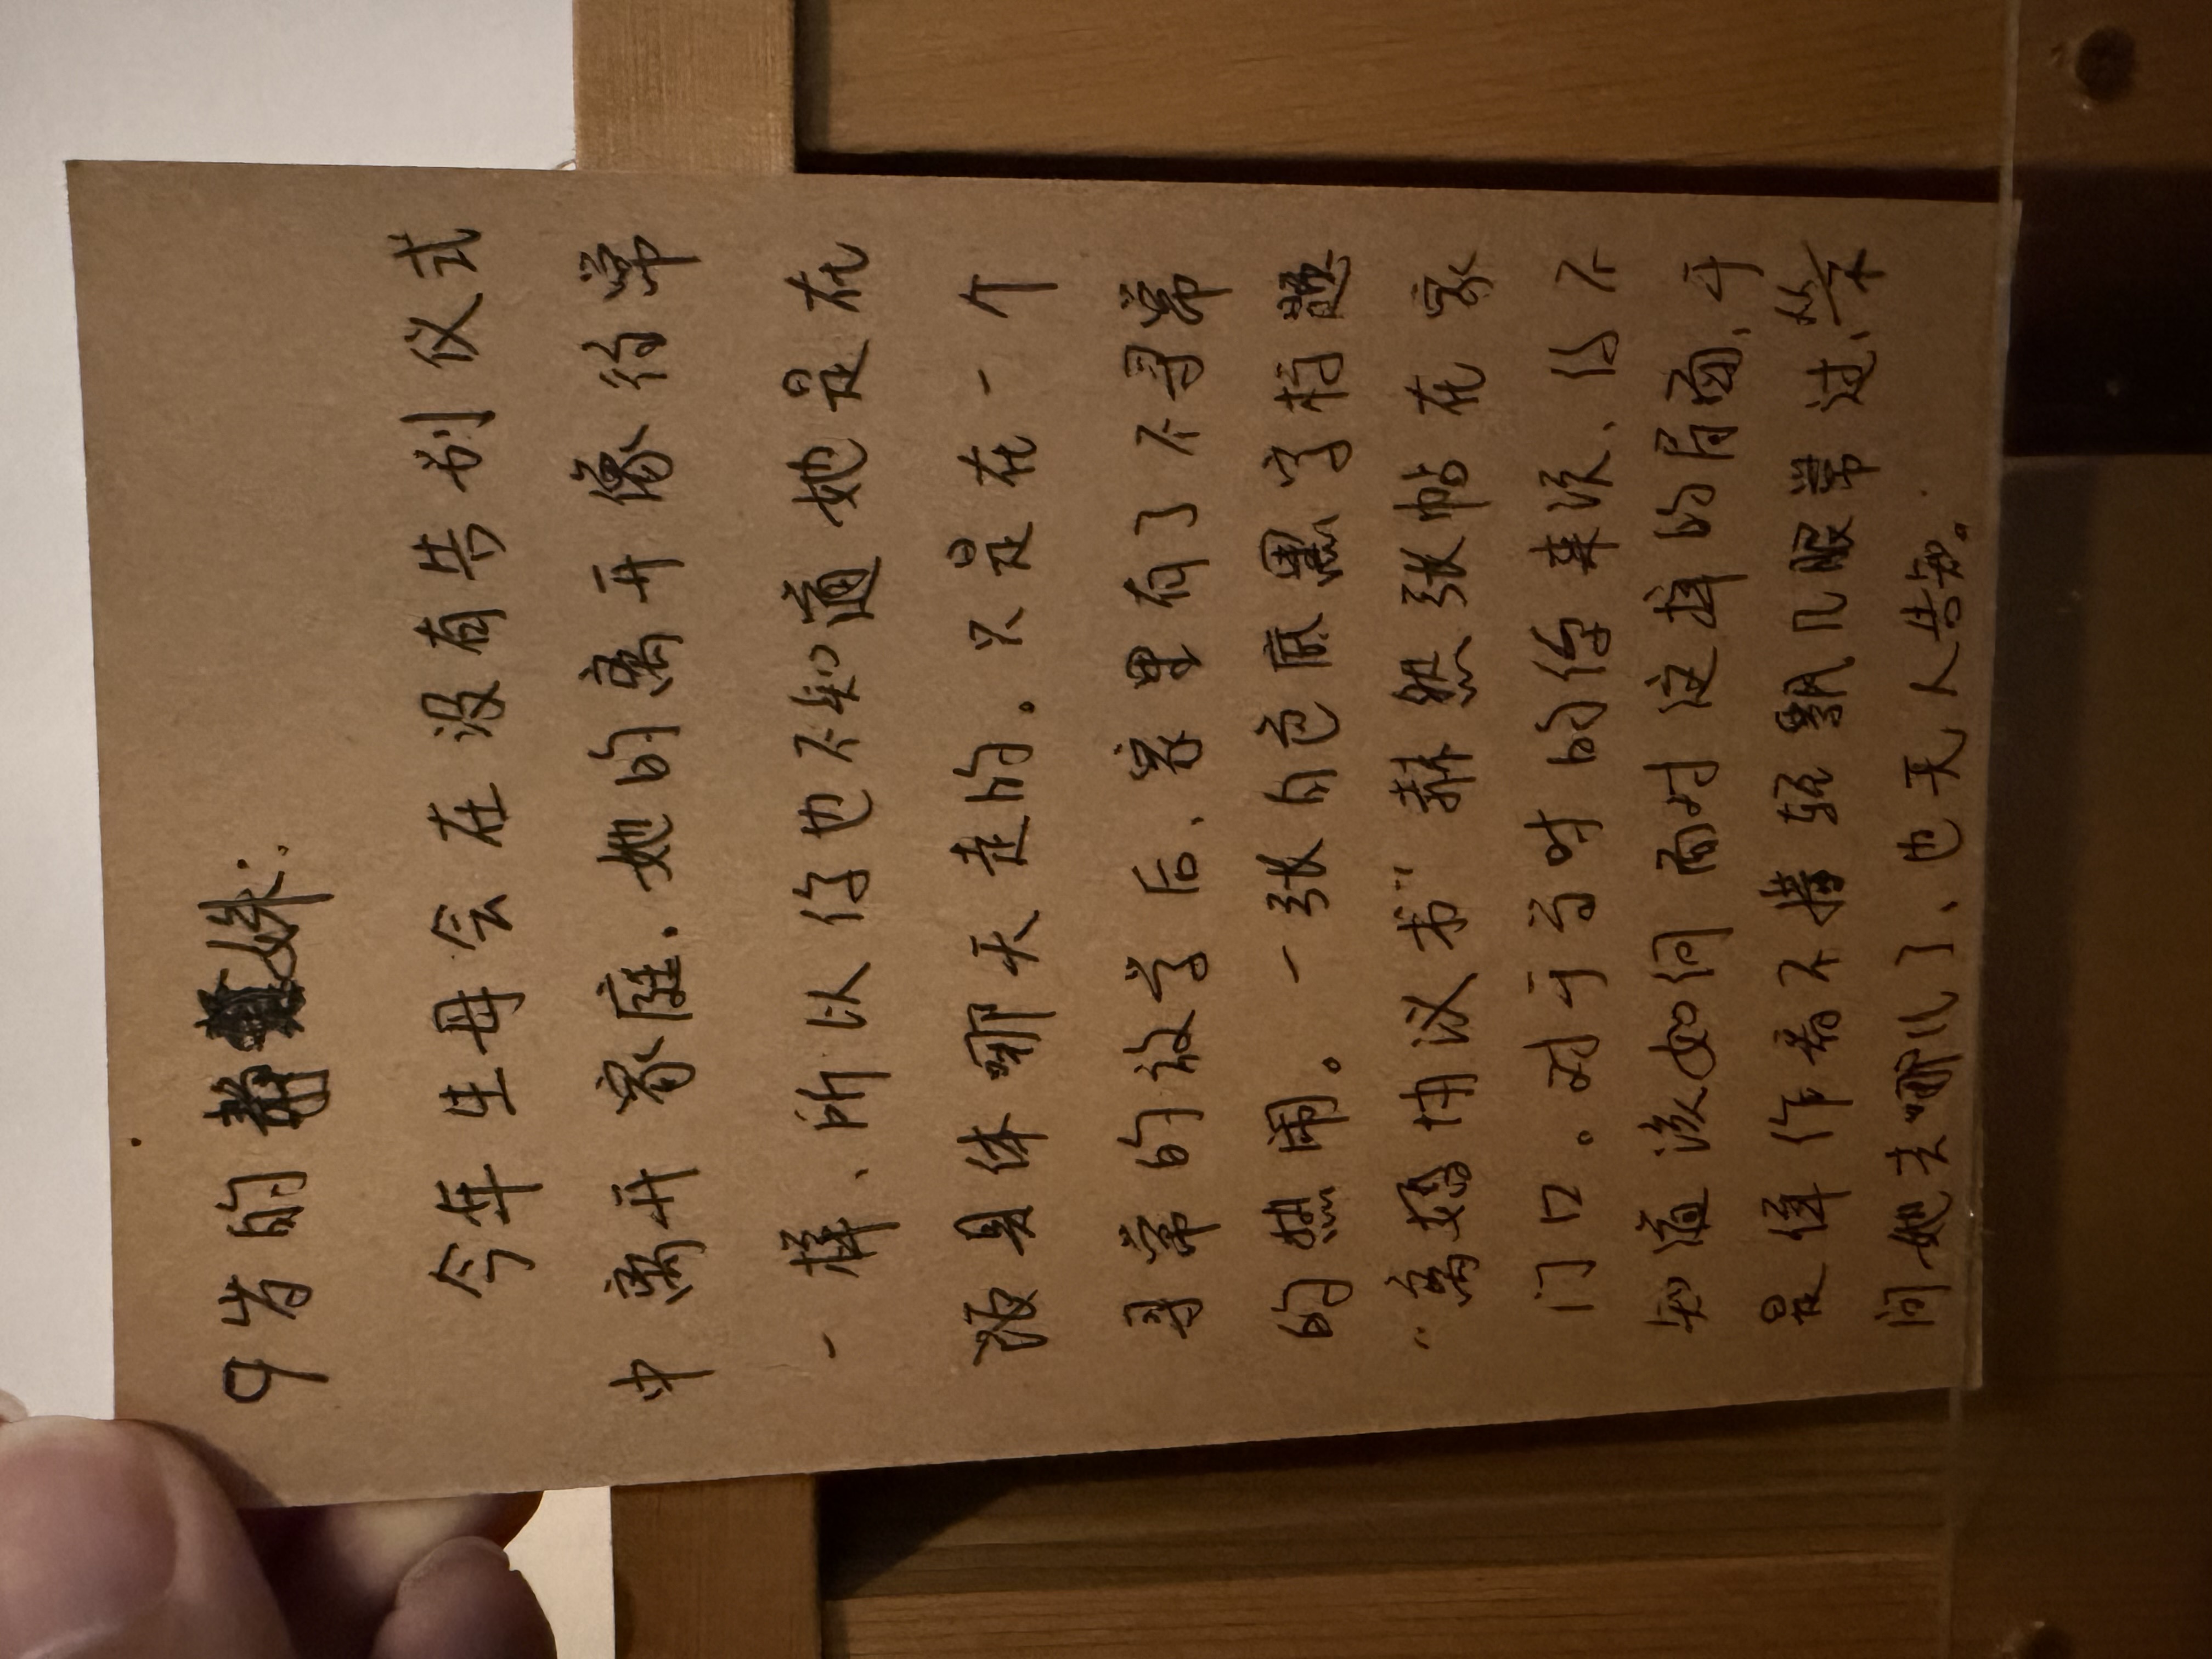 9岁的静姝:
今年生母会在没有告别仪式
中离开家庭.她的离开像往常
一样、所以你也不知道她是在
哪天走的。只是在一个
寻常的放学后、家里有了不寻常
的热闹。一张白色底黑字标题
“离婚协议书”赫然张帖在家
门口。对于当时的你来说、你不
知道该如何面对这样的局面、于
是佯作若不
问她去哪儿了、也无人告知。